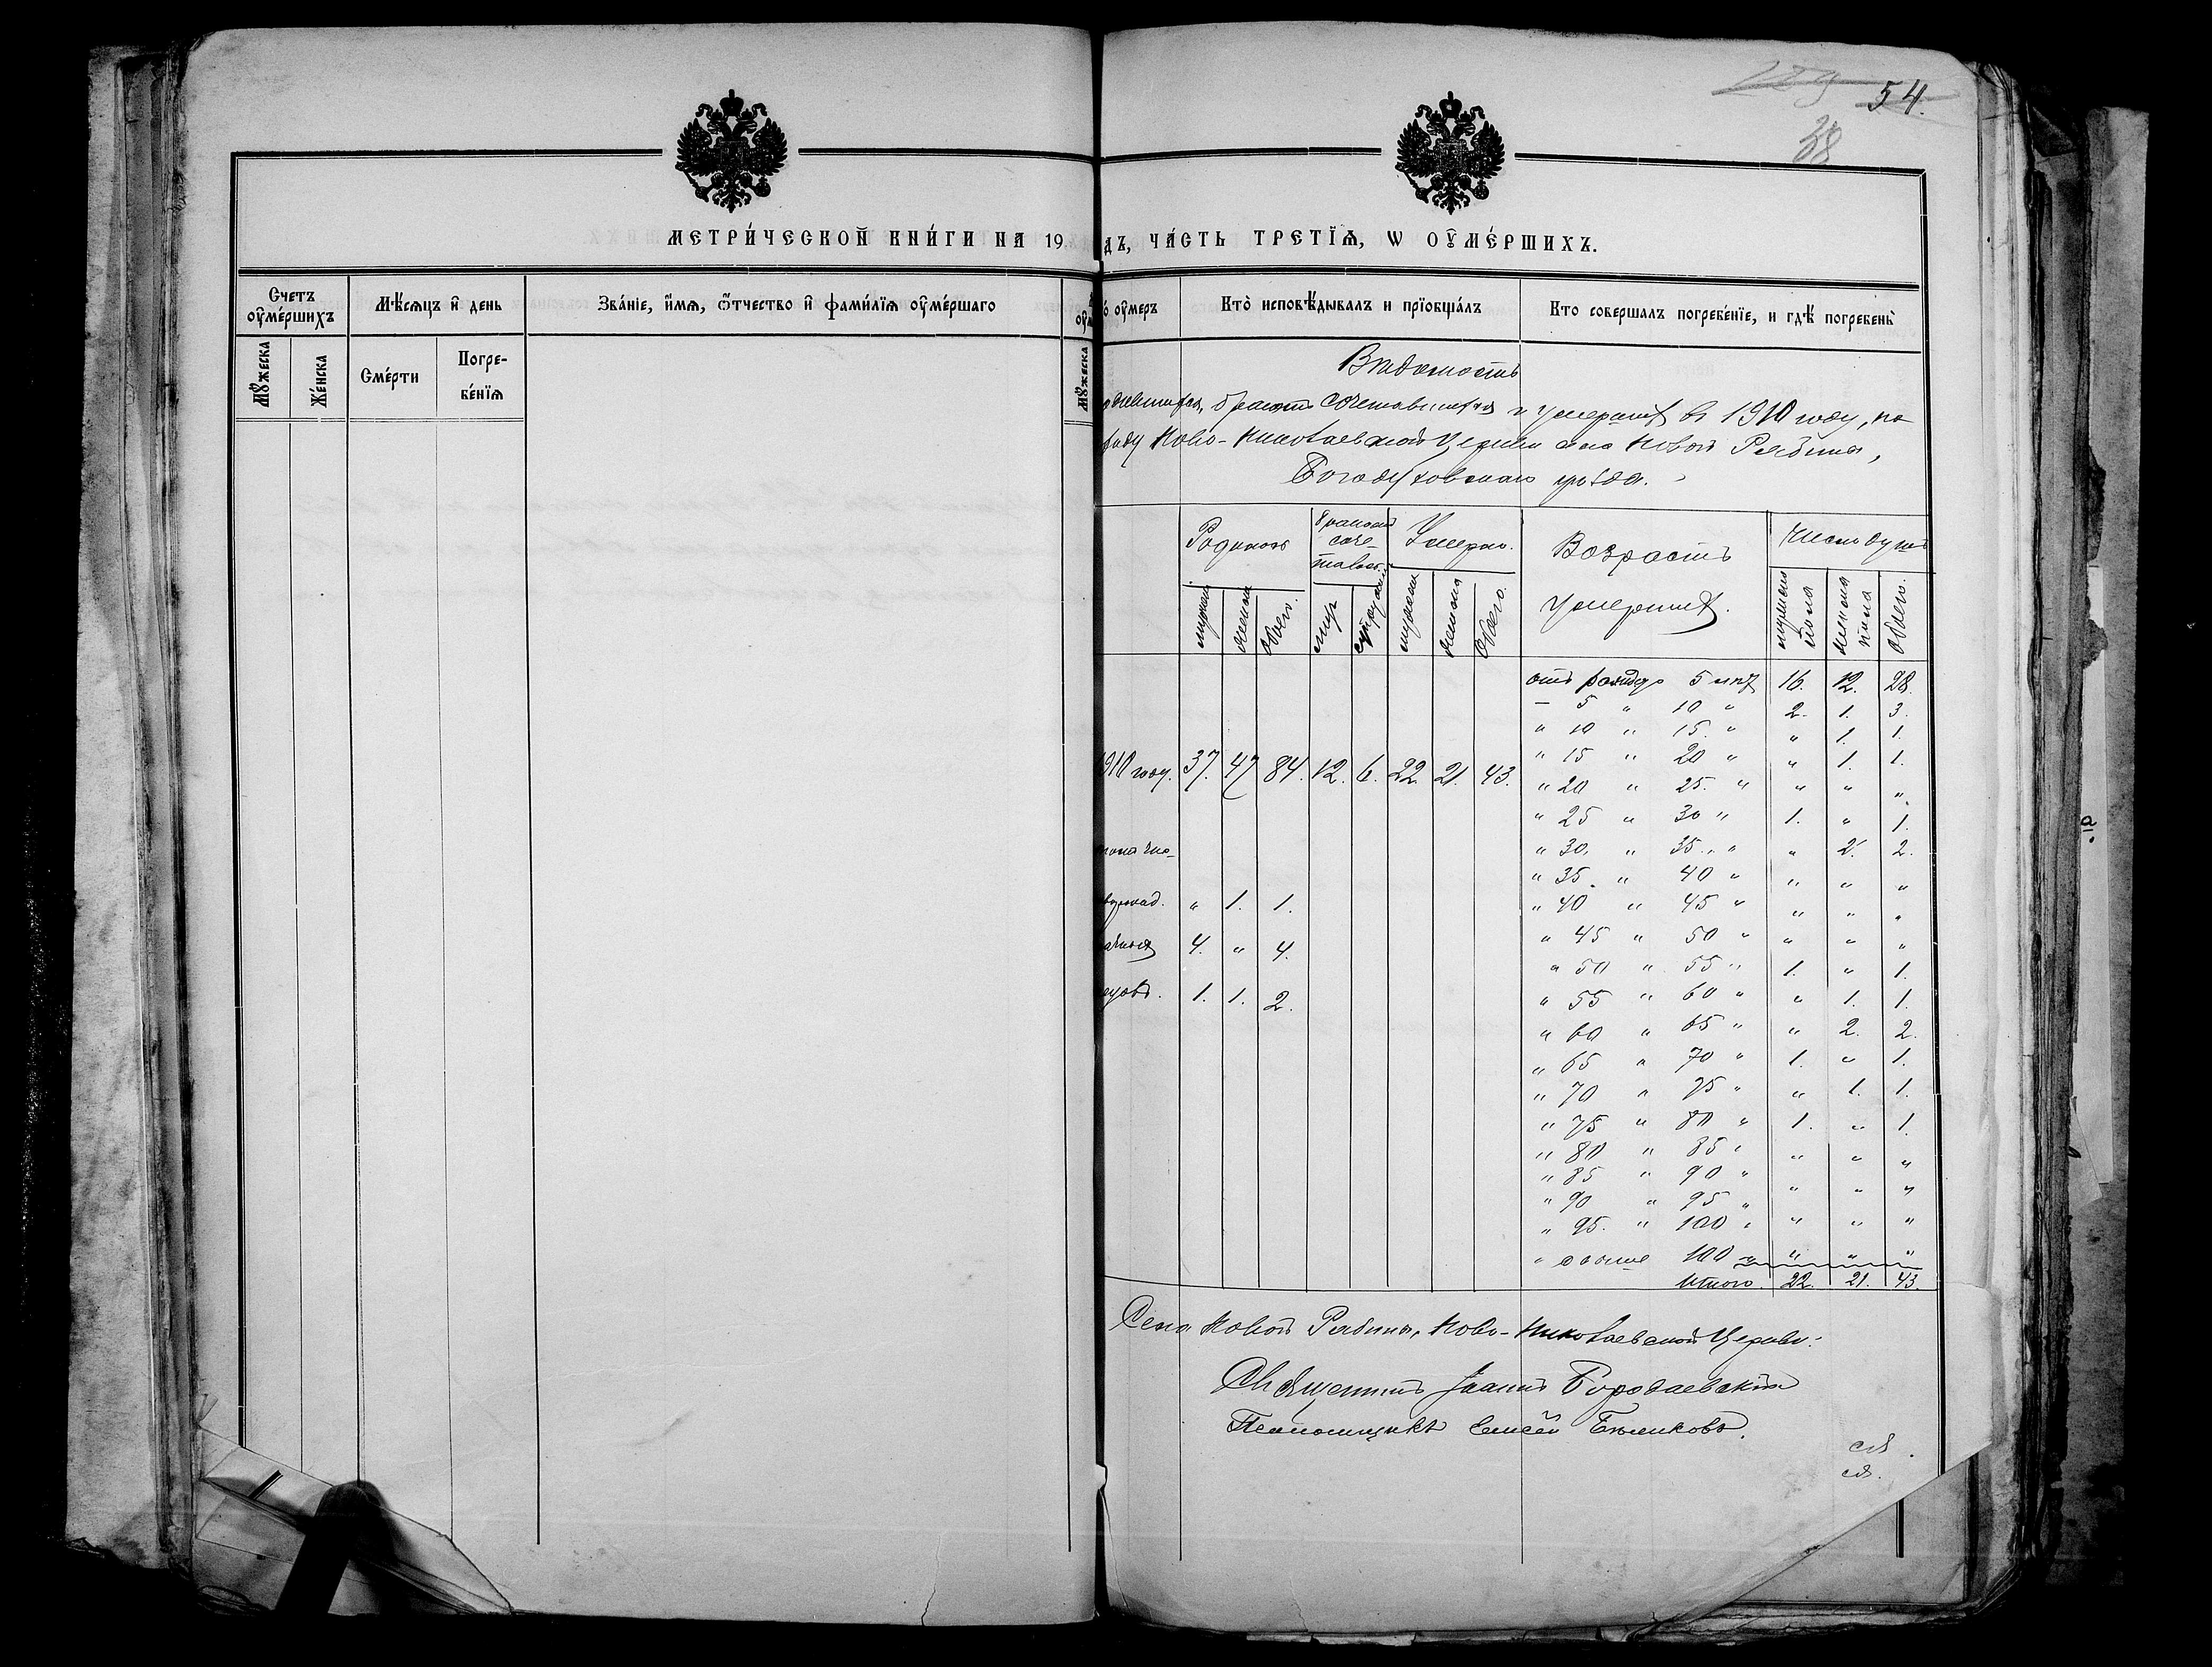 129 54.
38
МЕТРИ́ЧЕСКОЙ КНИ́ГИ НА 19
дъ, ЧА́СТЬ ТРЕТЇѦ, Ѡ ОУ҆МЕ́РШИХЪ.
Счетъ оу҆ме́ршихъ
Мѣ́сяцъ и҆ день
Зва́нїе, и҆́мѧ, ѻ҆́тчество и҆ фами́лїѧ оу҆ме́ршаго
Му́жеска
Же́нска
Сме́рти
Погребе́нїѧ
Му́жеска
о́ оу҆меръ
Кто̀ исповѣ́дывалъ и прїобща́лъ
Кто совершалъ погребе́нїе, и гдѣ̀ погребены̀
Вѣдомость
одившихся, бракомъ сочетавшихся и умершихъ въ 1910 году, по
ходу Ново-Николаевской Церкви села Новой Рябины,
Богодуховскаго уѣзда.
Родилось
бракомъ соче-талось
Умерло.
Возрастъ умершихъ.
Число душъ
мужеск.
женска
Обоего.
муж
супруж
мужеска
женска
Обоего.
мужеска пола
женска пола
Обоего.
отъ рожд до 5 лѣтъ 16. 12. 28.
— 5 " 10 " 2. 1. 3.
" 10 " 15. " " 1. 1.
" 15 " 20 " " 1. 1.
1910 году. 37. 47 84. 12. 6. 22. 21. 43.
" 20 " 25. " " " "
" 25 " 30 " 1. " 1.
" 30. " 35. " " 2. 2.
" 35 " 40 " " " "
" 40 " 45 " " " "
" 1. 1.
" 45 " 50 " " " "
4. " 4.
" 50 " 55 " 1. " 1.
1. 1. 2.
" 55 " 60 " " 1. 1.
" 60 " 65 " " 2. 2.
" 65 " 70 " 1. " 1.
" 70 " 75 " " 1. 1.
" 75 " 80 " 1. " 1.
" 80 " 85 " " " "
" 85 " 90 "
" 90 " 95 " " " "
" 95. " 100 " " " "
" свыше 100 " " " "
Итого. 22. 21. 43.
Села Новой Рябины, Ново-Николаевской Церкви:
Священникъ Іоаннъ Бородаевскій
Псаломщикъ